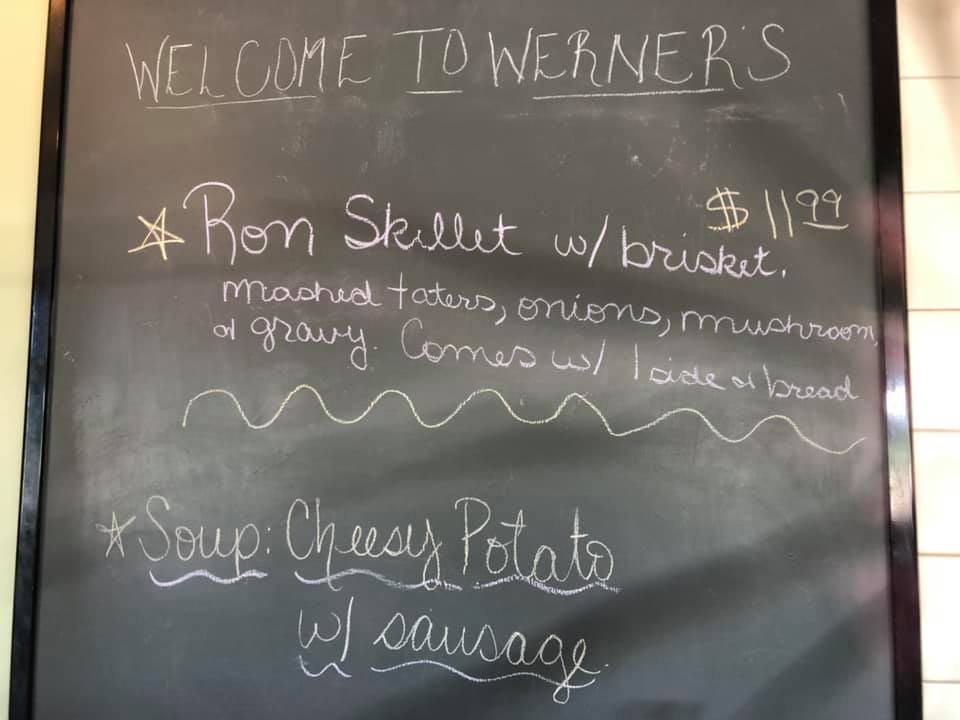 WELCOME TO WERNER'S
Ron Skillet w/ brisket. $11 99
mashed taters, onions, mushroom,
& gravy. Comes w/ 1 side & bread
Soup: Cheesy Potato
w/ sausage